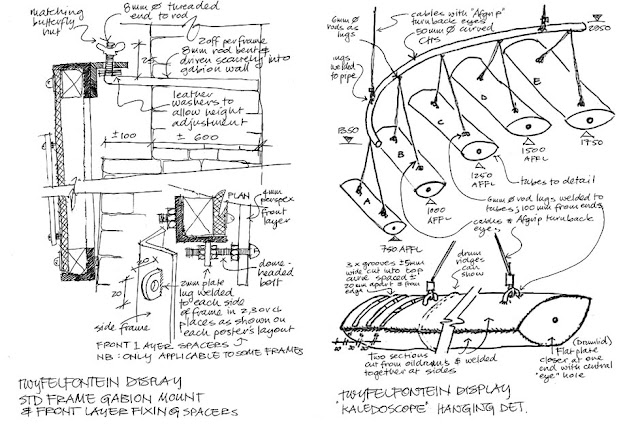 matching
butterfly
nut
8mm Ø threaded
end to rod
2 off per frame
8mm rod bent &
driven securely into
gabion wall
leather
washers to
allow height
adjustment
±100
± 600
PLAN
4mm
perspex
front
layer
dome-
headed
bolt
20
20
2mm plate
lug welded
to each side
of frame in 2,3 or 4
places as shown on
each poster's layout
side frame
FRONT LAYER SPACERS
NB: ONLY APPLICABLE TO SOME FRAMES
TWYFELFONTEIN DISPLAY
STD FRAME GABION MOUNT
& FRONT LAYER FIXING SPACERS
6mm Ø
rods as
lugs
cables with "Afgrip"
turnback eyes
50mm Ø curved
CHS
lugs
welded
to pipe
2050
1350
A
B
C
D
E
750 AFFL
1000
AFFL
1250
AFFL
1500
AFFL
1750
tubes to detail
6mm Ø rod lugs welded to
tubes; 100mm from ends
cables & Afgrip turnback
eye
3 x grooves ±5mm
wide cut into top
curve spaced ±
20mm apart & from
edge
drum
ridges
can
show
Two sections
cut from oildrums & welded
together at sides
Flat plate
closer at one
end with central
"eye" hole
TWYFELFONTEIN DISPLAY
"KALEDOSCOPE" HANGING DET.